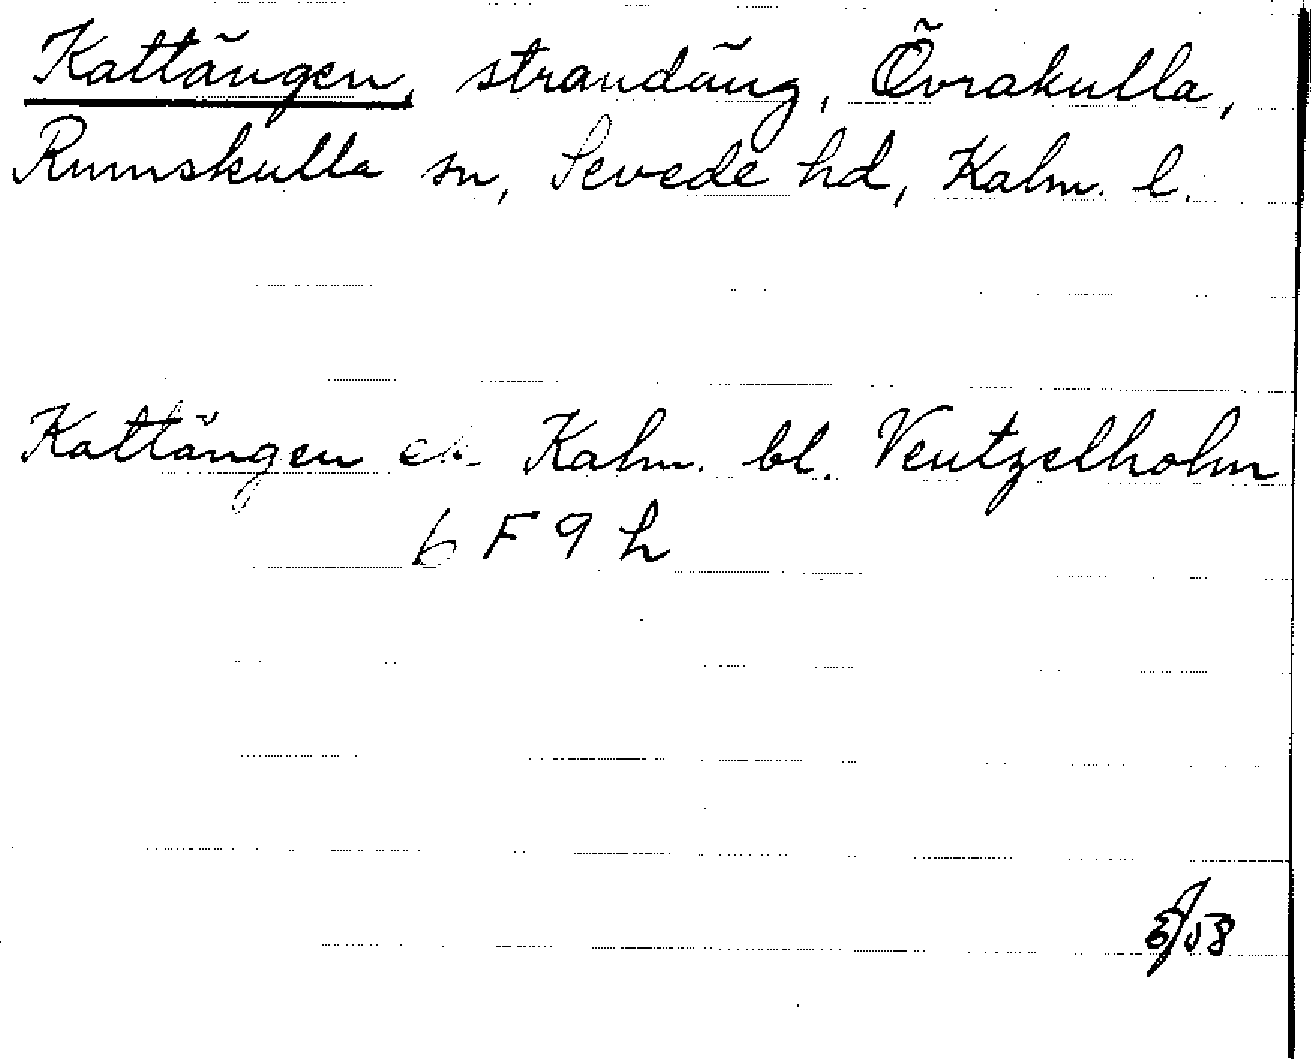 Kattängen, strandäng, Övrakulla,
Rumskulla sn, Sevede hd, Kalm. l.
Kattängen ek Kalm. bl. Ventzelholm
6 F 9 h